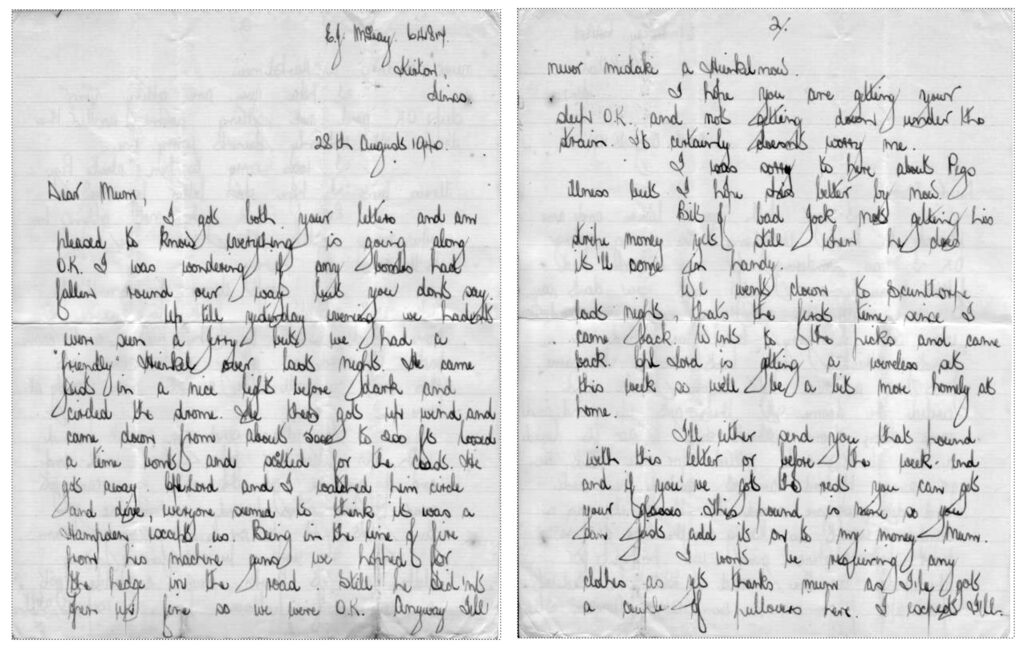 Kirton
Lincs.
28th August 1940.
Dear Mum,
I got both your letters and am
pleased to know everything is going along
O.K. I was wondering if any bombs had
fallen round our way but you dont say.
Up till yesterday evening we hadent
even seen a Jerry but we had a
"friendly" Heinkel over last night. He came
just in a nice light before dark and
circled the drome. He then got up wind and
came down from about to ft loosed
a time bomb and pelted for the coast. He
got away. and I watched him circle
and dive everyone seemed to think it was a
Hampden except us. Being in the line of fire
from his machine guns we hopped for
the hedge in the road. Still he did'nt
open up fire so we were O.K. Anyway I'll
2/.
never mistake a Heinkel now.
I hope you are getting your
sleep O.K. and not getting down under the
strain. It certainly doesn't worry me.
I was sorry to here about Pegs
illness but I hope shes better by now.
Bit of bad Jock not getting his
stripe money yet still when he does
it'll come in handy.
We went down to Scunthorpe
last night, thats the first time since I
came back. Went to the flicks and came
back. Lord is getting a wireless set
this week so well be a bit more homely at
home.
I'll either send you that pound
with this letter or before the week-end
and if you've got the rest you can get
your glasses. This pound is being so you
can just add it on to my money Mum.
I wont be requiring any
clothes as yet thanks mum as I've got
a couple of pullovers here. I expect I'll